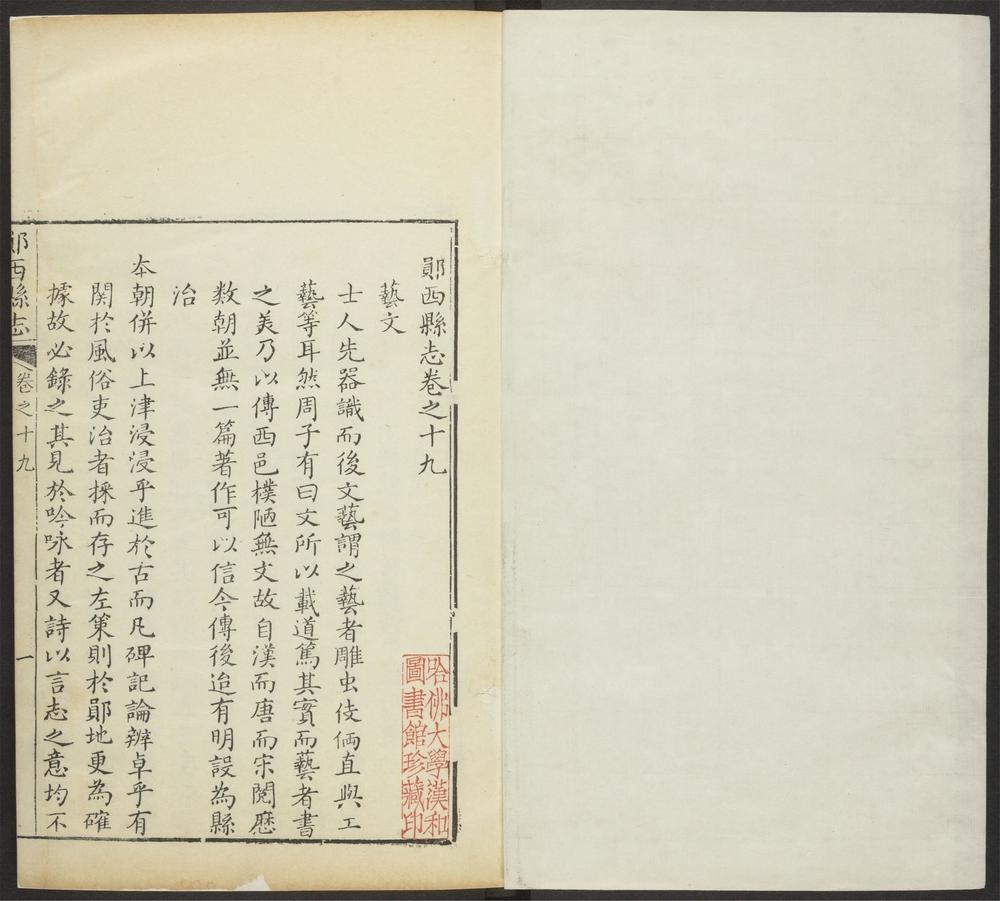 鄖西縣志卷之十九
藝文
士人先器識而後文藝謂之藝者雕虫伎倆直與工
藝等耳然周子有曰文所以載道篤其實而藝者書
之美乃以傳西邑樸陋無文故自漢而唐而宋閱歷
数朝並無一篇著作可以信今傳後迨有明設為縣
治
本朝併以上津浸浸乎進於古而凡碑記論辨卓乎有
関於風俗吏治者採而存之左策則於鄖地更為確
據故必錄之其見於吟咏者又詩以言志之意均不
鄖西縣志
卷之十九
一
哈佛大學漢和
圖書館珍藏印